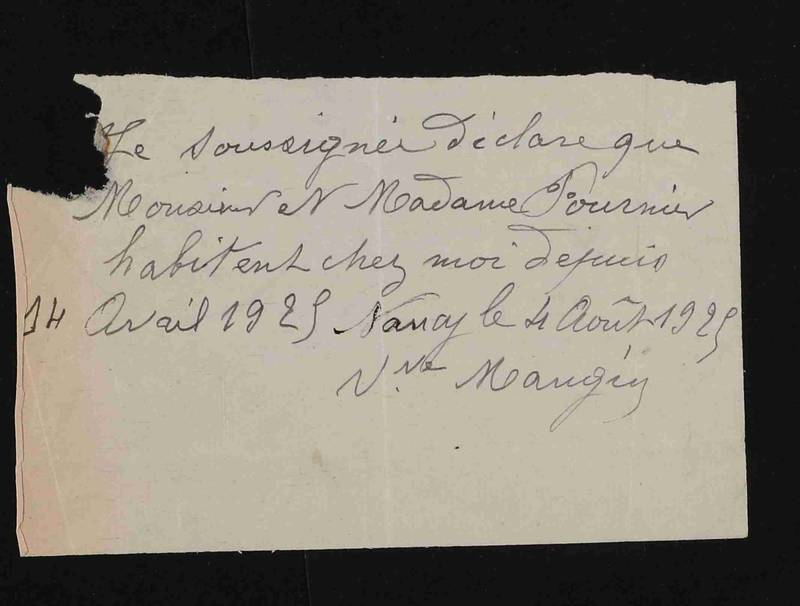 Je soussignée déclare que
Monsieur et Madame Fournier
habitent chez moi depuis
14 Avril 1925 Nancy le 4 Août 1925
Vve Maugin